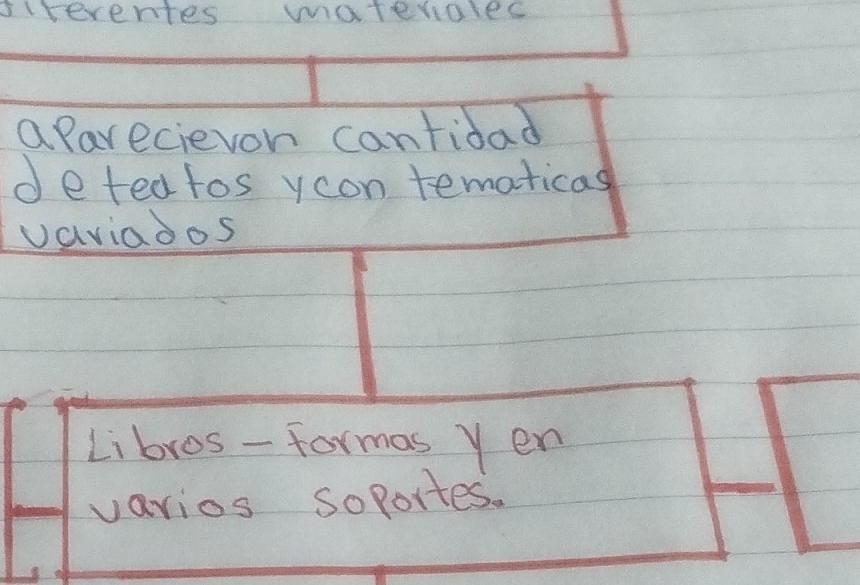 diferentes materiales
aparecieron cantidad
de teatos y con tematicas
variados
Libros - formas y en
varios soportes.